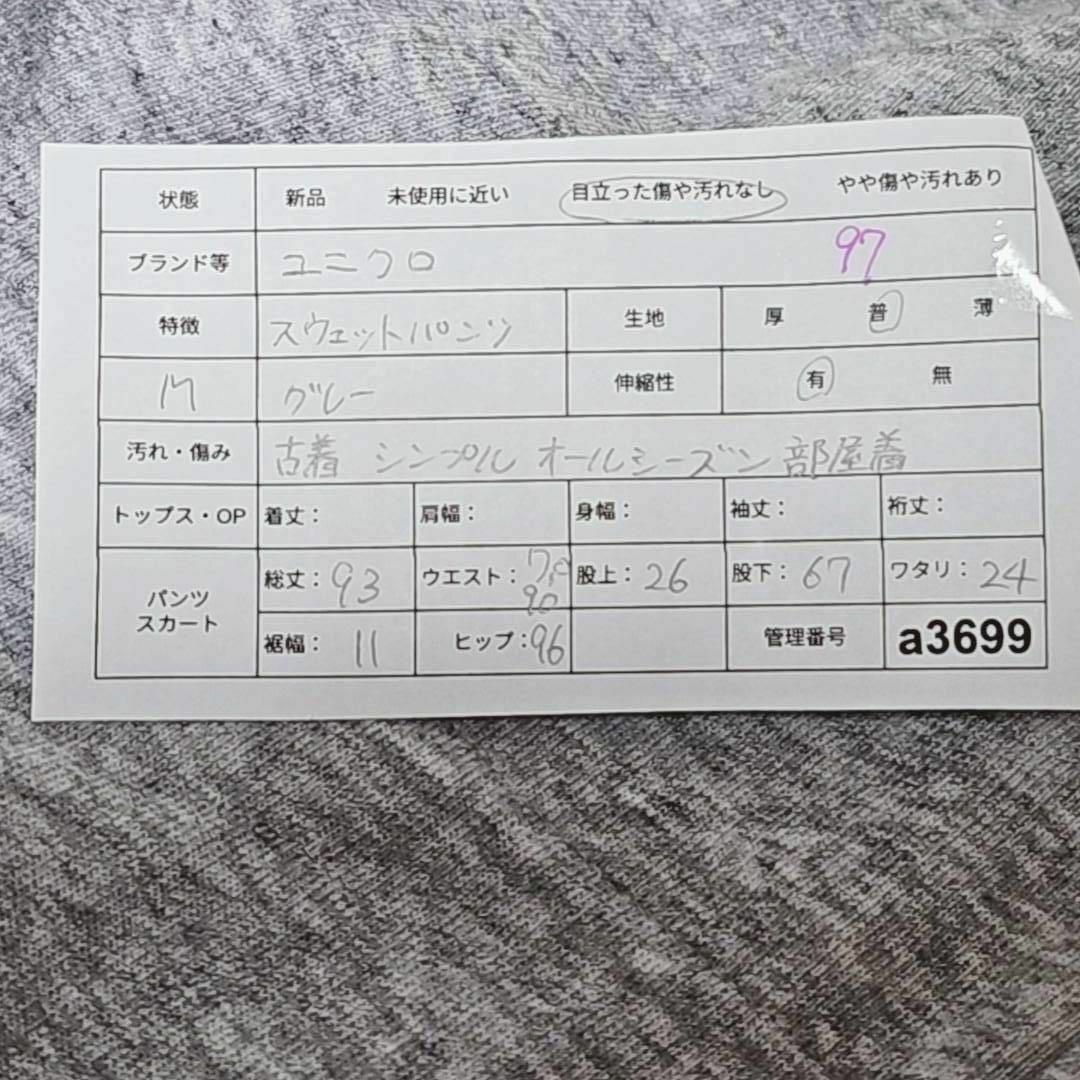 状態 新品 未使用に近い 目立った傷や汚れなし やや傷や汚れあり
ブランド等 ユニクロ 97
特徴 スウェットパンツ 生地 厚 普 薄
M グレー 伸縮性 有 無
汚れ・傷み 古着 シンプル オールシーズン 部屋着
トップス・OP 着丈: 肩幅: 身幅: 袖丈: 裄丈:
パンツ
スカート
総丈: 93 ウエスト: 70 90 股上: 26 股下: 67 ワタリ: 24
裾幅: 11 ヒップ: 96 管理番号 a3699